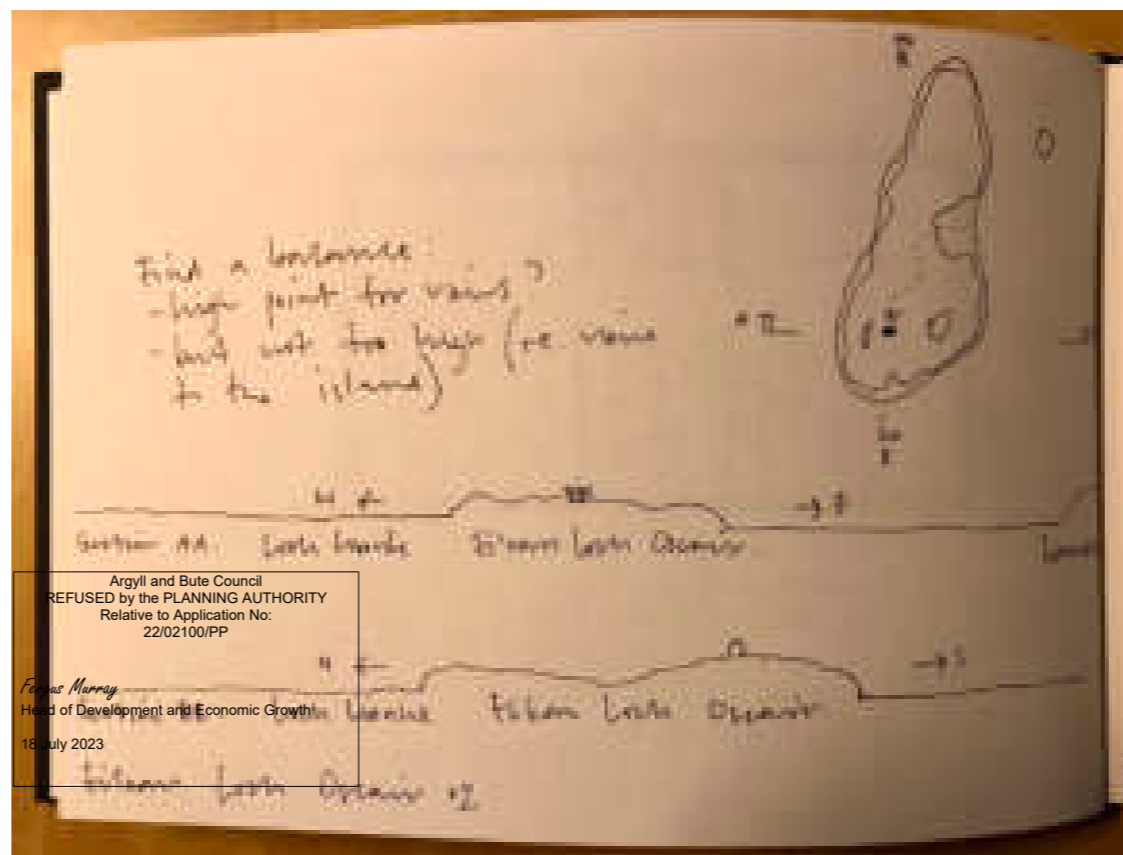 Find a balance:
- high point for views?
- but not too high (re views
to the island)
W
→ E
Section AA. Loch Linnhe Eilean Loch Oscair
Argyll and Bute Council
REFUSED by the PLANNING AUTHORITY
Relative to Application No:
22/02100/PP
N
→ S
Fergus Murray
Head of Development and Economic Growth
Loch Linnhe Eilean Loch Oscair
18 July 2023
Eilean Loch Oscair